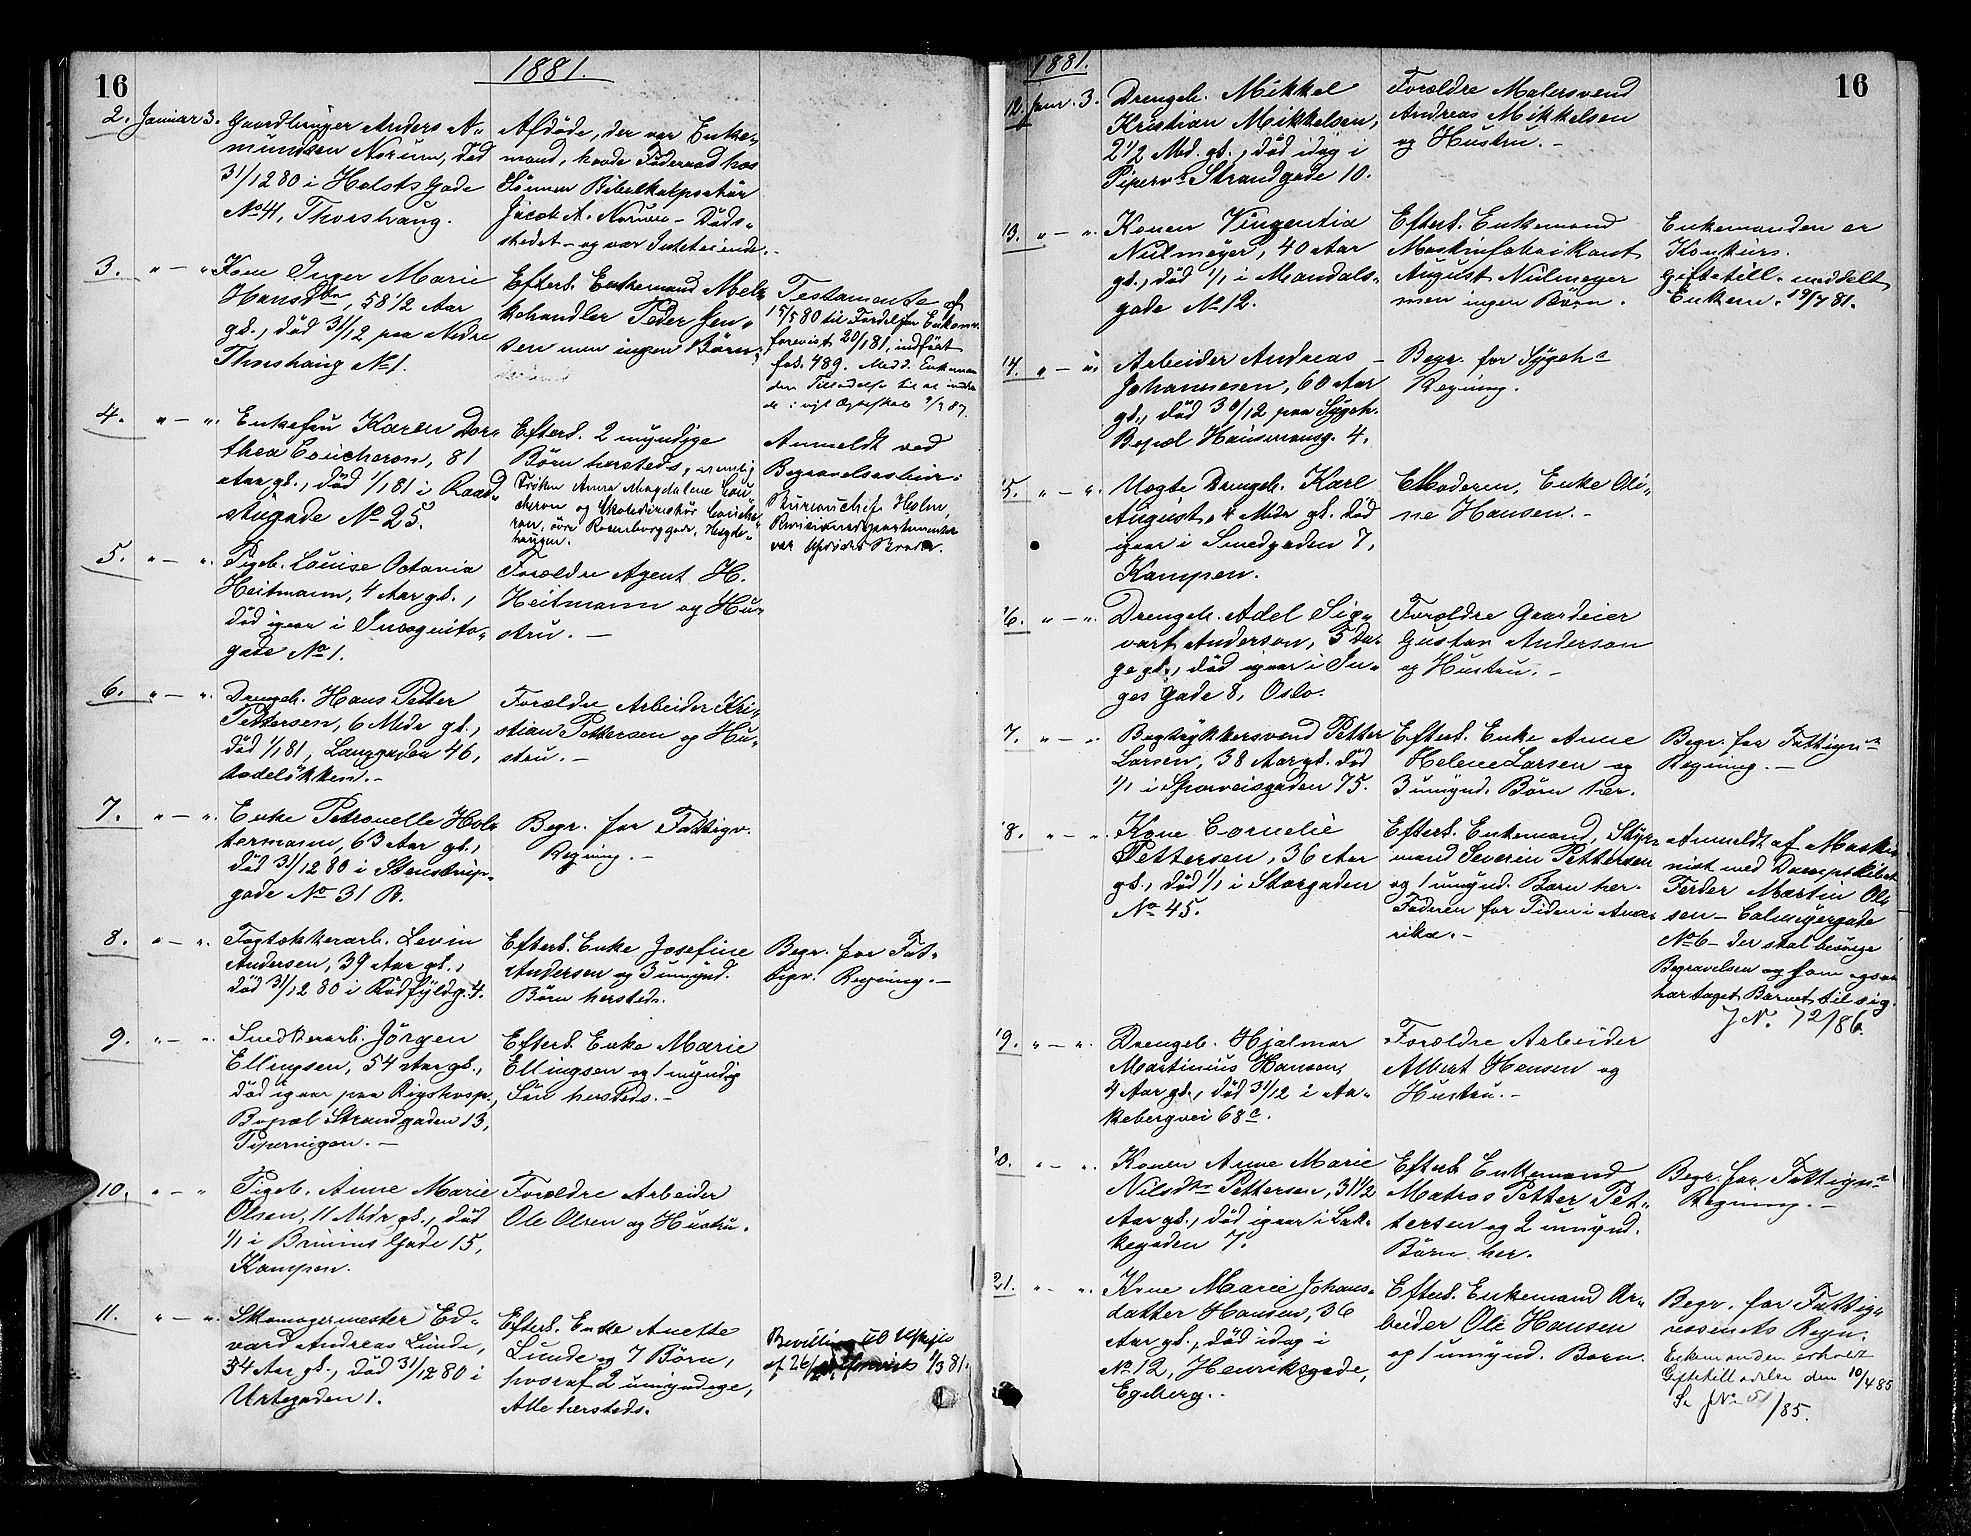 16
1881.
2. Januar 3. Gaardbruger Anders A-
mundsen Norum, død
31/12 80 i Holsts Gade
No 41, Thorshaug.
Afdøde, der var Enke-
mand, havde Føderaad hos
Sønnen Bibelkolportør
Jacob A. Norum – Døds-
stedet – og var Intet eiende.
3. " — " Kone Inger Marie
Hansdtr, 58 1/2 Aar
gl., død 31/12 paa Nedre
Thorshaug No 1.
Efterl. Enkemand Mel-
handler Peder Jen-
sen men ingen Børn.
Testamente af
15/5 80 til Fordel for Enkem.
forevist 20/1 81, indført
fol. 489. Medd. Enkeman
den Tilladelse til at indtræ
de i nyt Ægteskab
4. " — ". Enkefru Karen Dor-
thea Coucheron, 81
Aar gl., død 1/1 81 i Raad-
stugade No 25.
Efterl. 2 myndige
Børn hersteds, nemlig
Frøken Anna Magdalene Cou-
cheron og Skoledirektør Couche-
ron, øvre Rosenborggade, Hegde-
haugen.
Anmeldt ved
Begravelsesbur:
Bureauchef Holm,
Revisionsdepartementet
var Afdødes Broder.
5. " — ". Pigeb. Louise Octavia
Heitmann, 4 Aar gl.,
død igaar i Incognito-
gade No 1.
Forældre Agent H.
Heitmann og Hu-
stru. —
6. " — ". Drengeb. Hans Petter
Pettersen, 6 Mdr gl.,
død 1/1 81, Langgaden 46,
Rodeløkken. -
Forældre Arbeider Kri-
stian Pettersen og Hu-
stru. -
7. " — ". Enke Petronelle Hol-
termann, 63 Aar gl.,
død 31/12 80 i Stenstrup-
gade No 31 B.
Begr. for Fattigv.
Regning. -
8. " — ". Tagtækkerarb. Levin
Andersen, 39 Aar gl.,
død 31/12 80 i Rødfyldg. 4.
Efterl. Enke Josefine
Andersen og 3 umynd.
Børn hersteds.
Begr. for Fat-
tigv. Regning. -
9. " — ". Snedkerarb. Jørgen
Ellingsen, 54 Aar gl.,
død igaar paa Rigshosp.,
Bopæl Strandgaden 13,
Pipervigen. -
Efterl. Enke Marie
Ellingsen og 1 myndig
Søn hersteds. -
10. " — " Pigeb. Anne Marie
Olsen, 11 Mdr gl., død
1/1 i Bruuns Gade 15,
Kampen.
Forældre Arbeider
Ole Olsen og Hustru.
11. " — ". Skomagermester Ed-
vard Andreas Lunde,
54 Aar gl., død 31/12 80 i
Urtegaden 1.
Efterl. Enke Anette
Lunde og 7 Børn,
hvoraf 2 umyndige,
Alle hersteds.
Bevilling til Uskifte
af 26/ forevist 1/3 81.
1881.
16
12. Janr. 3. Drengeb. Mikkel
Kristian Mikkelsen,
2 1/2 Md. gl., død idag i
Piperv. Strandgade 10.
Forældre Malersvend
Andreas Mikkelsen
og Hustru. -
13. " — ". Konen Vingentia
Nulmeyer, 40 Aar
gl., død 1/1 i Mandals-
gade No 12.
Efterl. Enkemand
Maskinfabrikant
August Nulmeyer
men ingen Børn.
Enkemanden er
Konkurs.
Giftetill. meddelt
Enkem. 19/7 81.
14. " — " Arbeider Andreas
Johannesen, 60 Aar
gl., død 30/12 paa Sygeh.
Bopæl Hausmannsg. 4.
Begr. for Sygeh.
Regning.
15. " — ". Uægte Drengeb. Karl
August, 4 Mdr gl. død
igaar i Smedgaden 7,
Kampen.
Moderen, Enke Oli-
ne Hansen. -
16. " — ". Drengeb. Adel Sig-
vart Anderson, 5 Da-
ge gl., død igaar i In-
ges Gade 8, Oslo.
Forældre Gaardeier
Gustav Anderson
og Hustru. -
17. " — " Bogtrykkersvend Petter
Larsen, 38 Aar gl. død
1/1 i Sporveisgaden 75.
Efterl. Enke Anne
Helene Larsen og
3 umynd. Børn her.
Begr. for Fattigv.
Regning. -
18. " — ". Kone Cornelie
Pettersen, 36 Aar
gl., død 1/1 i Storgaden
No 45.
Efterl. Enkemand, Styr-
mand Severin Pettersen
og 1 umynd. Barn her.
Faderen for Tiden i Ame-
rika. -
Anmeldt af Maski-
nist med Dampskibet
Færder Martin Ol-
sen – Calmeyergade
No 6 – der skal besørge
Begravelsen og som ogsaa
har taget Barnet til sig.
J No. 72/86.
19. " — ". Drengeb. Hjalmar
Martinius Hansen,
4 Aar gl., død 31/12 i Aa-
kebergvei 68 c.
Forældre Arbeider
Albert Hansen og
Hustru. -
20. " — ". Konen Anne Marie
Nilsdtr Pettersen, 31 1/2
Aar gl., død igaar i Lak-
kegaden 7.
Efterl. Enkemand
Matros Petter Pet-
tersen og 2 umynd.
Børn her.
Begr. for Fattigv.
Regning. -
21. " — ". Kone Marie Johans-
datter Hansen, 36
Aar gl., død idag i
No 12, Henriksgade,
Egeberg. -
Efterl. Enkemand Ar-
beider Ole Hansen
og 1 umynd. Barn.
Begr. for Fattig-
væsenets Regn.
Enkemanden erholdt
Giftetilladelse den 10/4 85
Se J No 51/85.